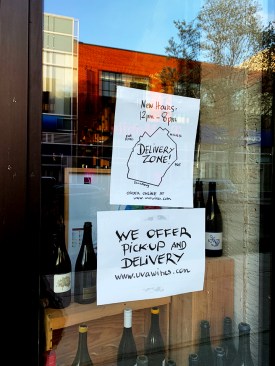 New Hours:
12pm - 8pm
DELIVERY
ZONE!
ORDER ONLINE AT
www.uvawines.com
WE OFFER
PICKUP AND
DELIVERY
www.uvawines.com